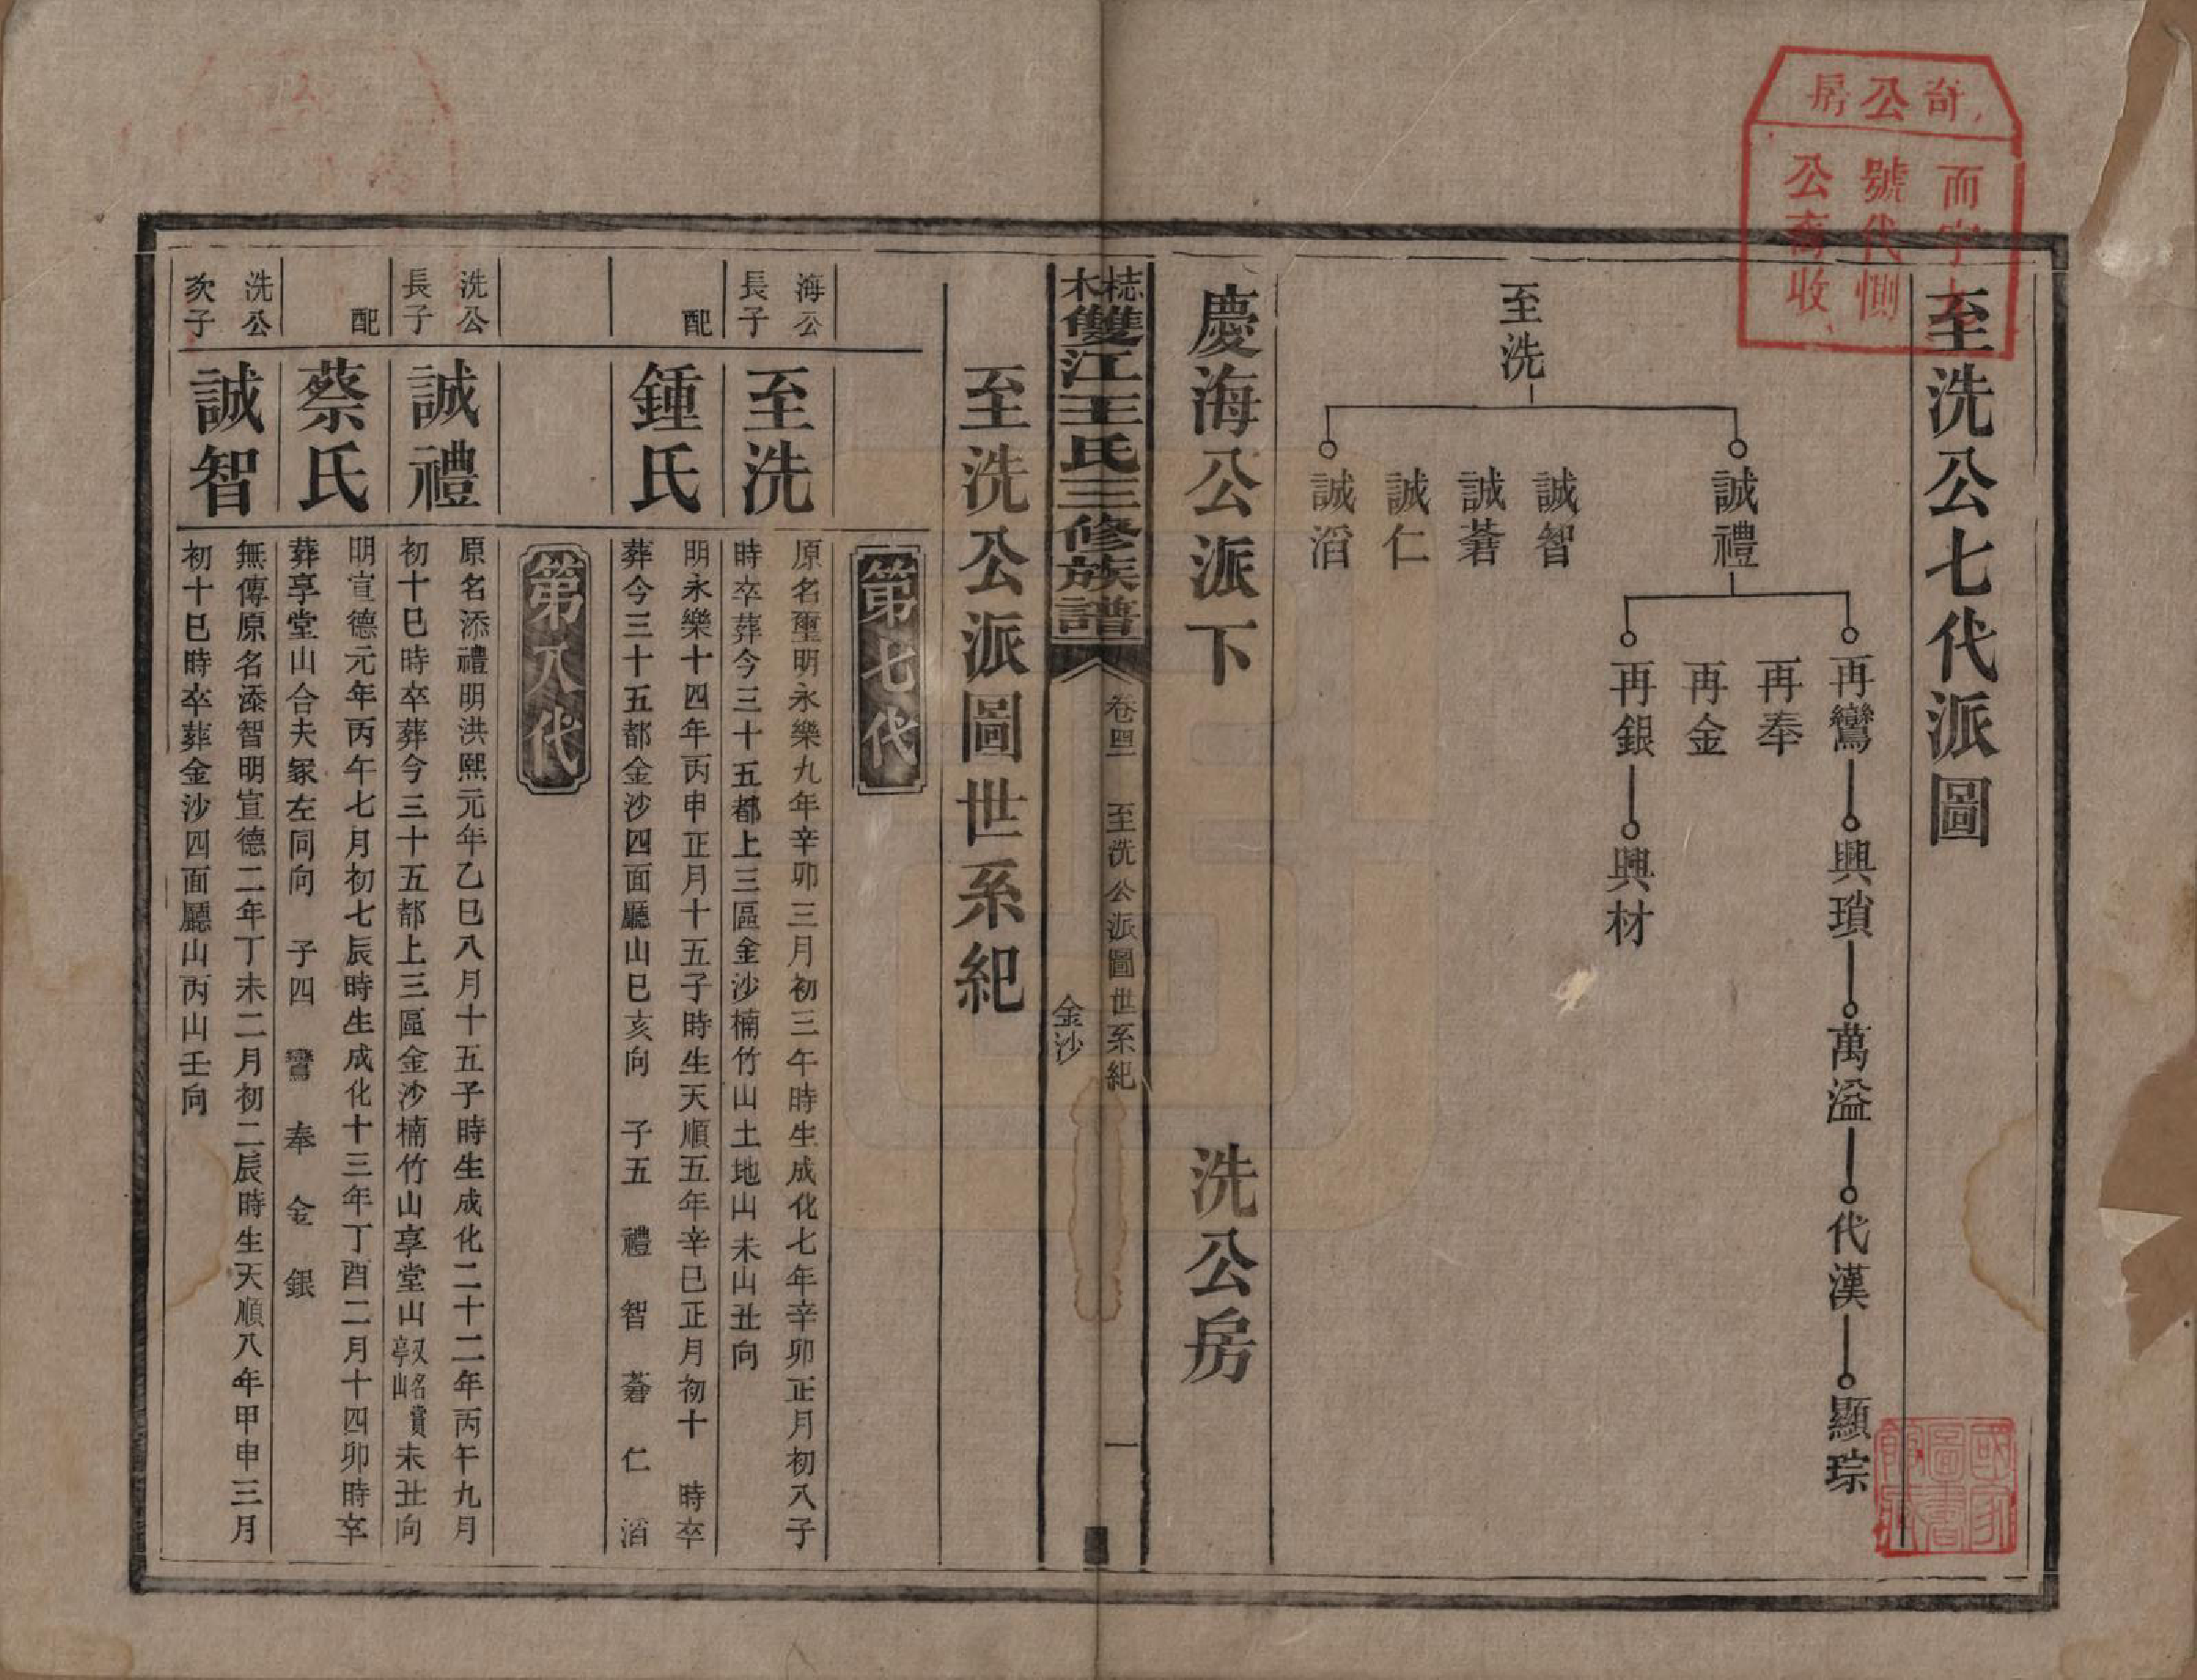 奇公房
而字
號代惻
公裔收
至洗公七代派圖
至洗
誠禮
誠智
誠蓍
誠仁
誠滔
再鸞
再奉
再金
再銀
興瑣
萬溢
代漢
顯琮
興材
國家圖書館藏
慶海公派下 洗公房
梽木雙江王氏三修族譜
卷四 至洗公派圖世系紀 一
金沙
至洗公派圖世系紀
第七代
海公長子
至洗
原名璽明永樂九年辛卯三月初三午時生成化七年辛卯正月初八子
時卒葬今三十五都上三區金沙楠竹山土地山未山丑向
配
鍾氏
明永樂十四年丙申正月十五子時生天順五年辛巳正月初十 時卒
葬今三十五都金沙四面廳山巳亥向 子五 禮 智 蓍 仁 滔
第八代
洗公長子
誠禮
原名添禮明洪熙元年乙巳八月十五子時生成化二十二年丙午九月
初十巳時卒葬今三十五都上三區金沙楠竹山享堂山又名賞亭山未丑向
配
蔡氏
明宣德元年丙午七月初七辰時生成化十三年丁酉二月十四卯時卒
葬享堂山合夫冢左同向 子四 鸞 奉 金 銀
洗公次子
誠智
無傳原名添智明宣德二年丁未二月初二辰時生天順八年甲申三月
初十巳時卒葬金沙四面廳山丙山壬向